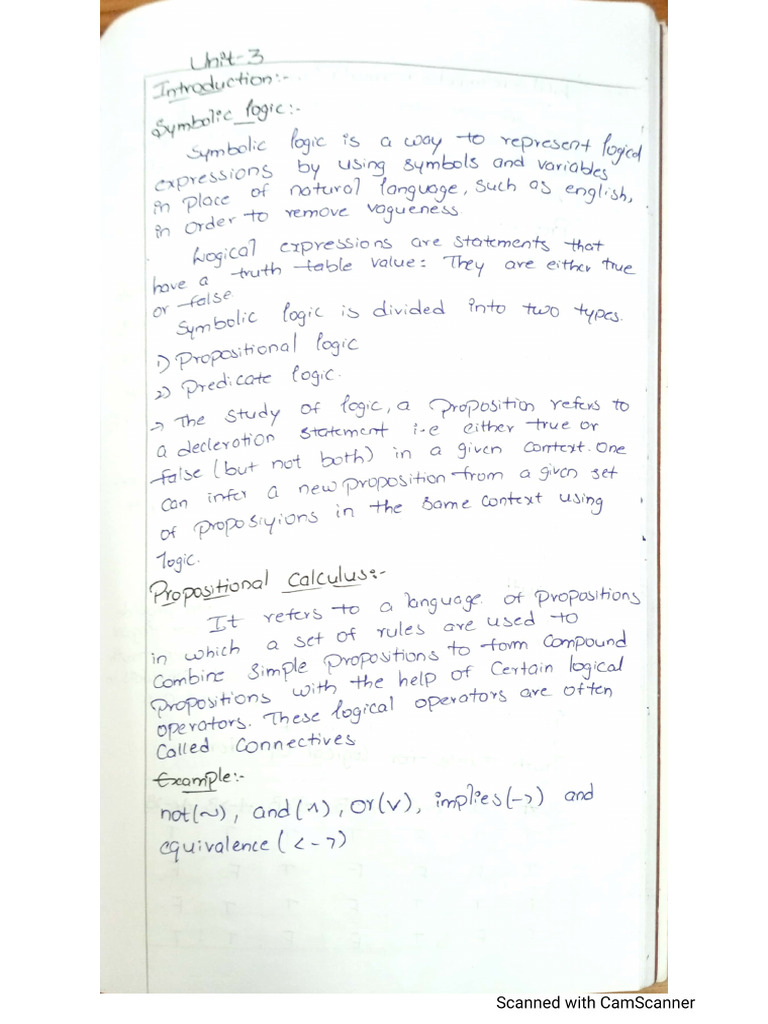 Unit-3
Introduction:-
Symbolic logic:-
Symbolic logic is a way to represent logical
expressions by using symbols and variables
in place of natural language, such as english,
in order to remove vagueness
Logical expressions are statements that
have a truth table value: They are either true
or false.
Symbolic logic is divided into two types.
1) Propositional logic
2) Predicate logic.
-> The study of logic, a proposition refers to
a decleration statement i-e either true or
false (but not both) in a given context. One
can infer a new proposition from a given set
of proposiyions in the same context using
logic.
Propositional calculus:-
It refers to a language of propositions
in which a set of rules are used to
Combine simple propositions to form compound
propositions with the help of certain logical
operators. These logical operators are often
Called connectives
Example:-
not(~), and(^), or(v), implies(->) and
equivalence(<->)
Scanned with CamScanner